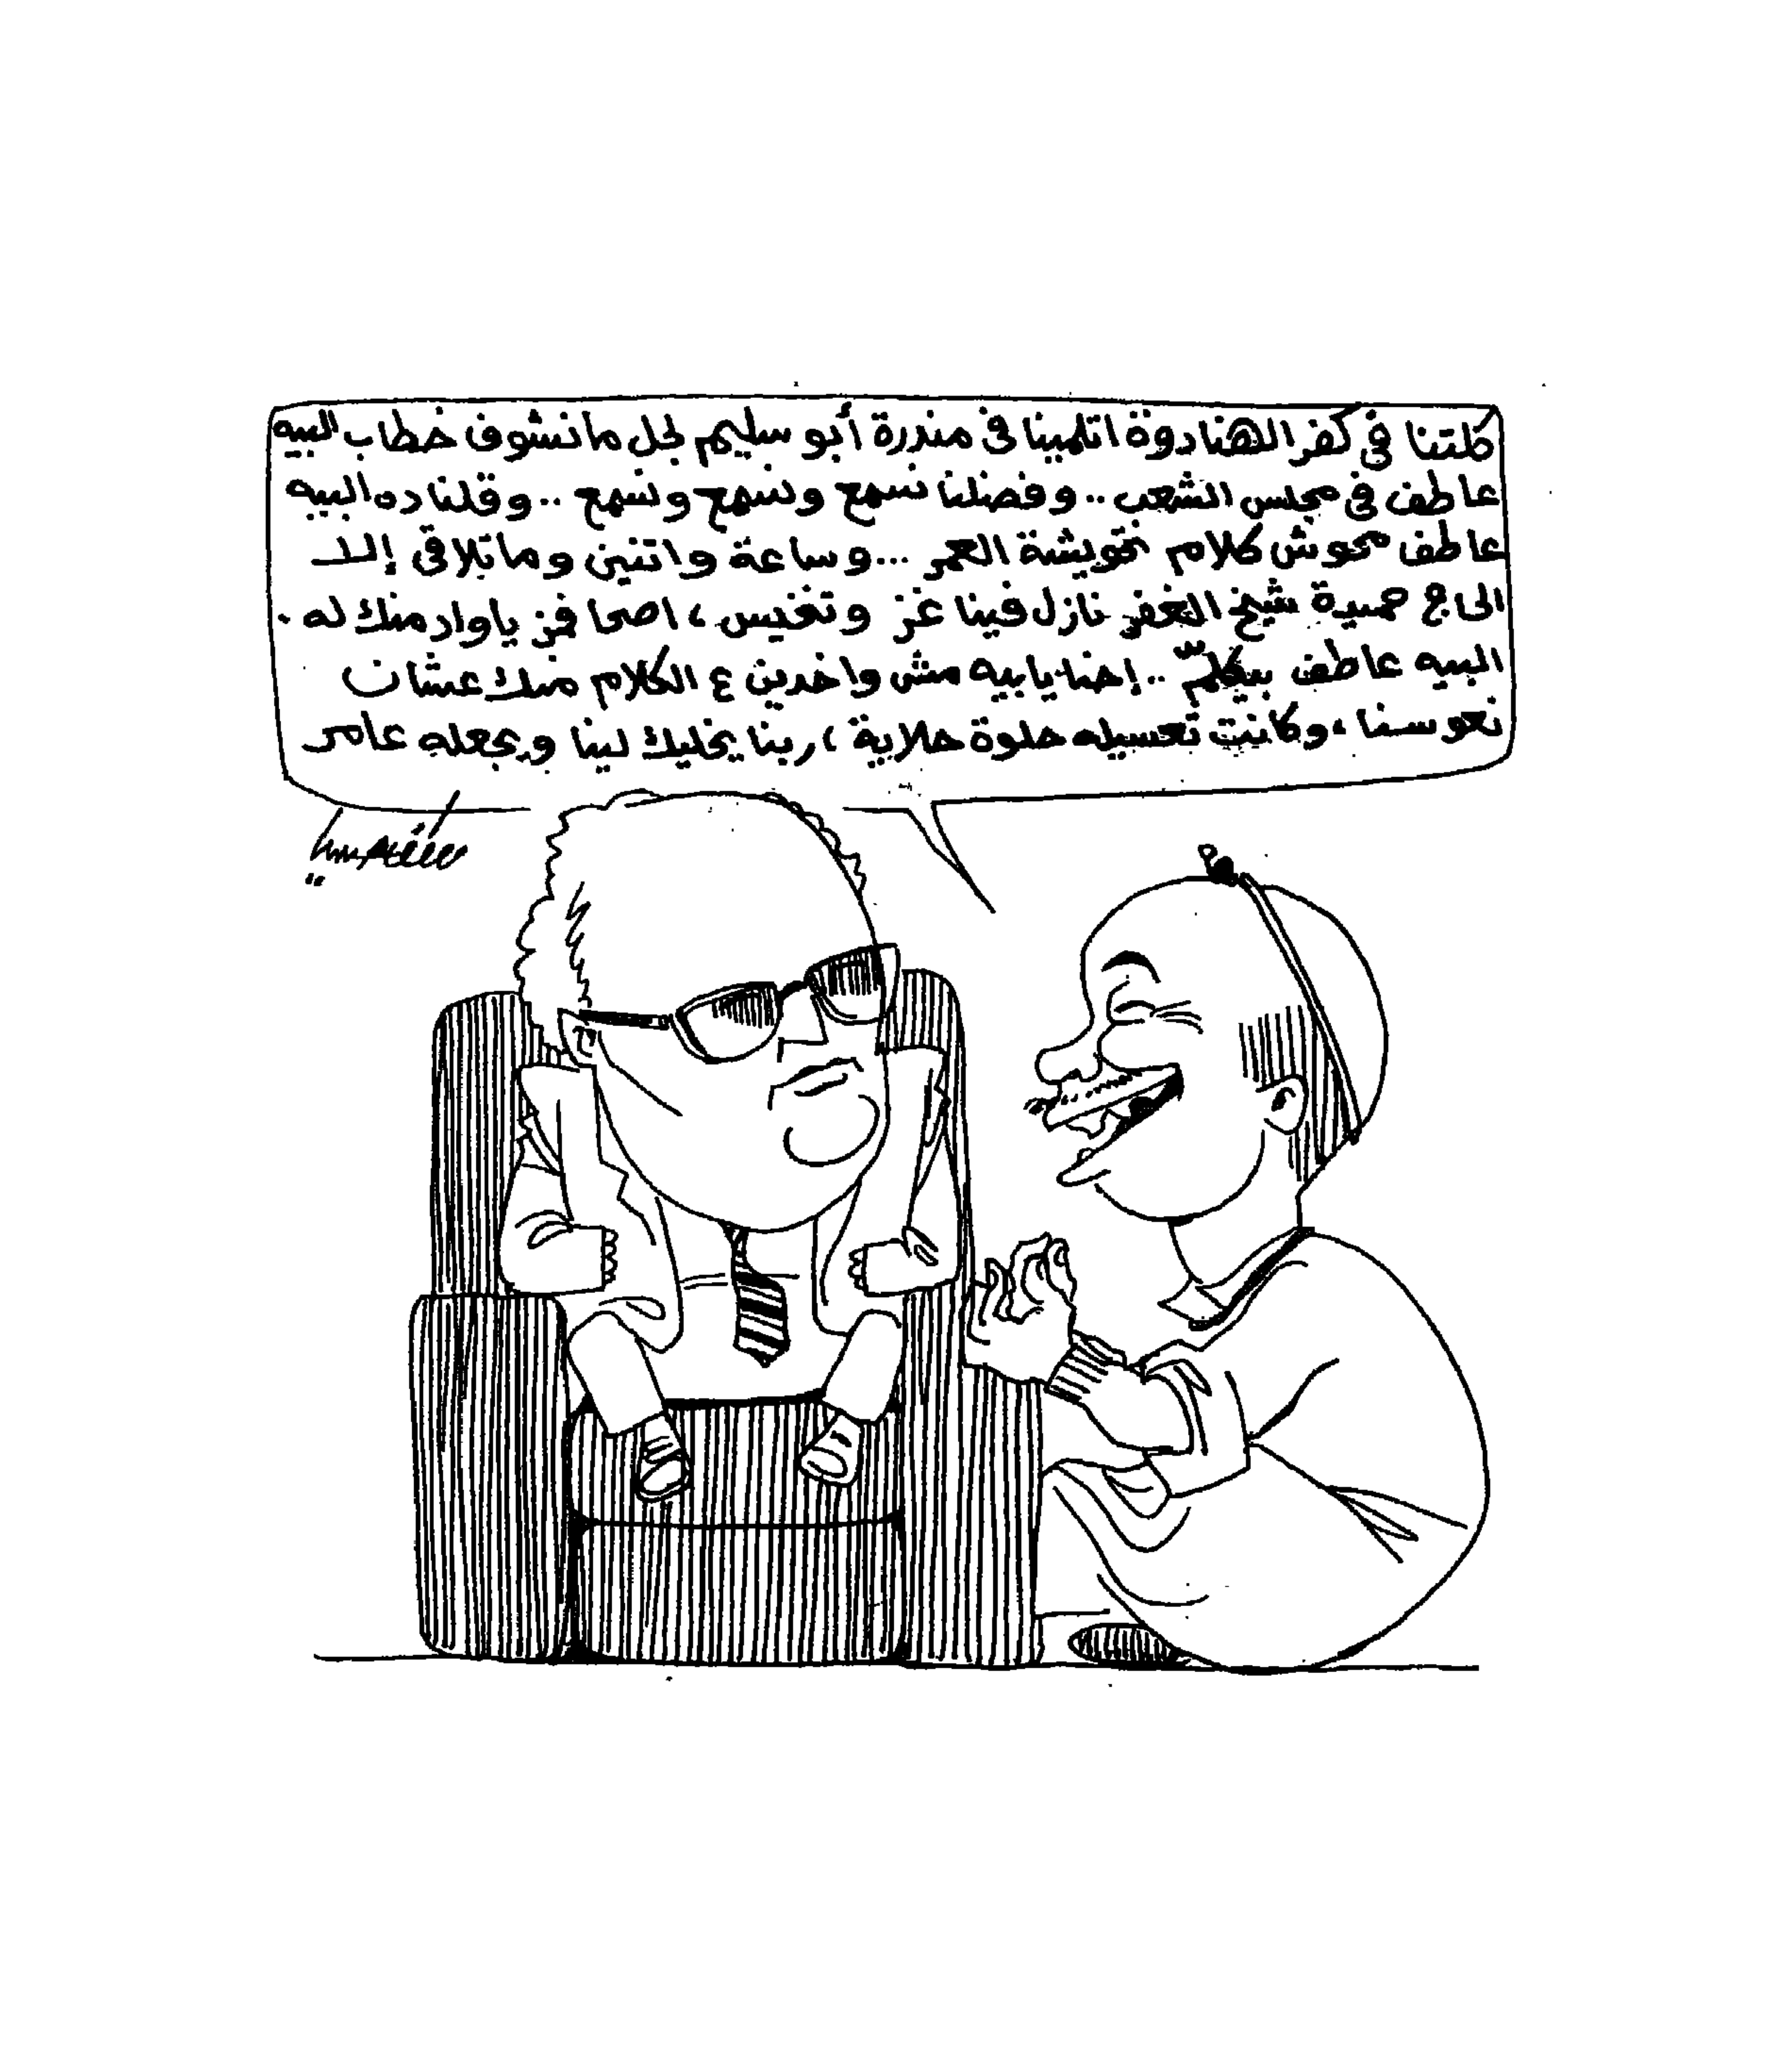 كلتنا في كفر الهنادوة اتلمينا في مندرة أبو سليم لجل ما نشوف خطاب البيه
عاطف في مجلس الشعب .. وفضلنا نسمع ونسمع ونسمع .. وقلنا ده البيه
عاطف محوش كلام تحويشة العمر ... وساعة واتنين وما تلاقى إلا
الحاج حميدة شيخ الغفر نازل فينا غز وتغيس ، اصحا فز يا واد منك له .
البيه عاطف بيتكلّم .. إحنا يا بيه مش واخدين ع الكلام منك عشان
نعوسنا ، وكانت تعسيله حلوة حلاية ، ربنا يخليك لينا ويجعله عامر